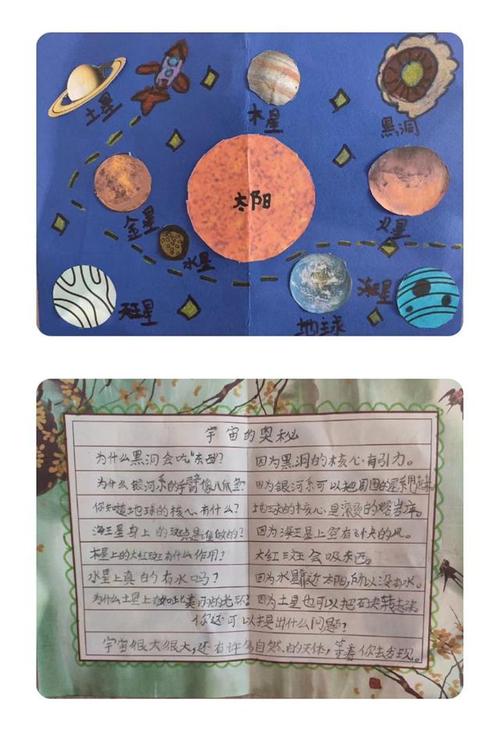 土星
木星
黑洞
太阳
金星
火星
水星
天王星
地球
海王星
宇宙的奥秘
为什么黑洞会吃"东西"? 因为黑洞的核心有引力。
为什么银河系的手臂像八爪鱼? 因为银河系可以把周围的星系
你知道地球的核心有什么? 地球的核心是滚烫的
海王星身上的斑点是 因为海王星上空有 的风。
木星上的大红斑有什么作用? 大红斑会吸东西。
水星上真的有水吗? 因为水星 近太阳,所以没有水。
为什么土星上 光环? 因为土星也可以把石头转起来
你还可以提出什么问题?
宇宙很大很大,还有许多自然的天体,等着你去发现。